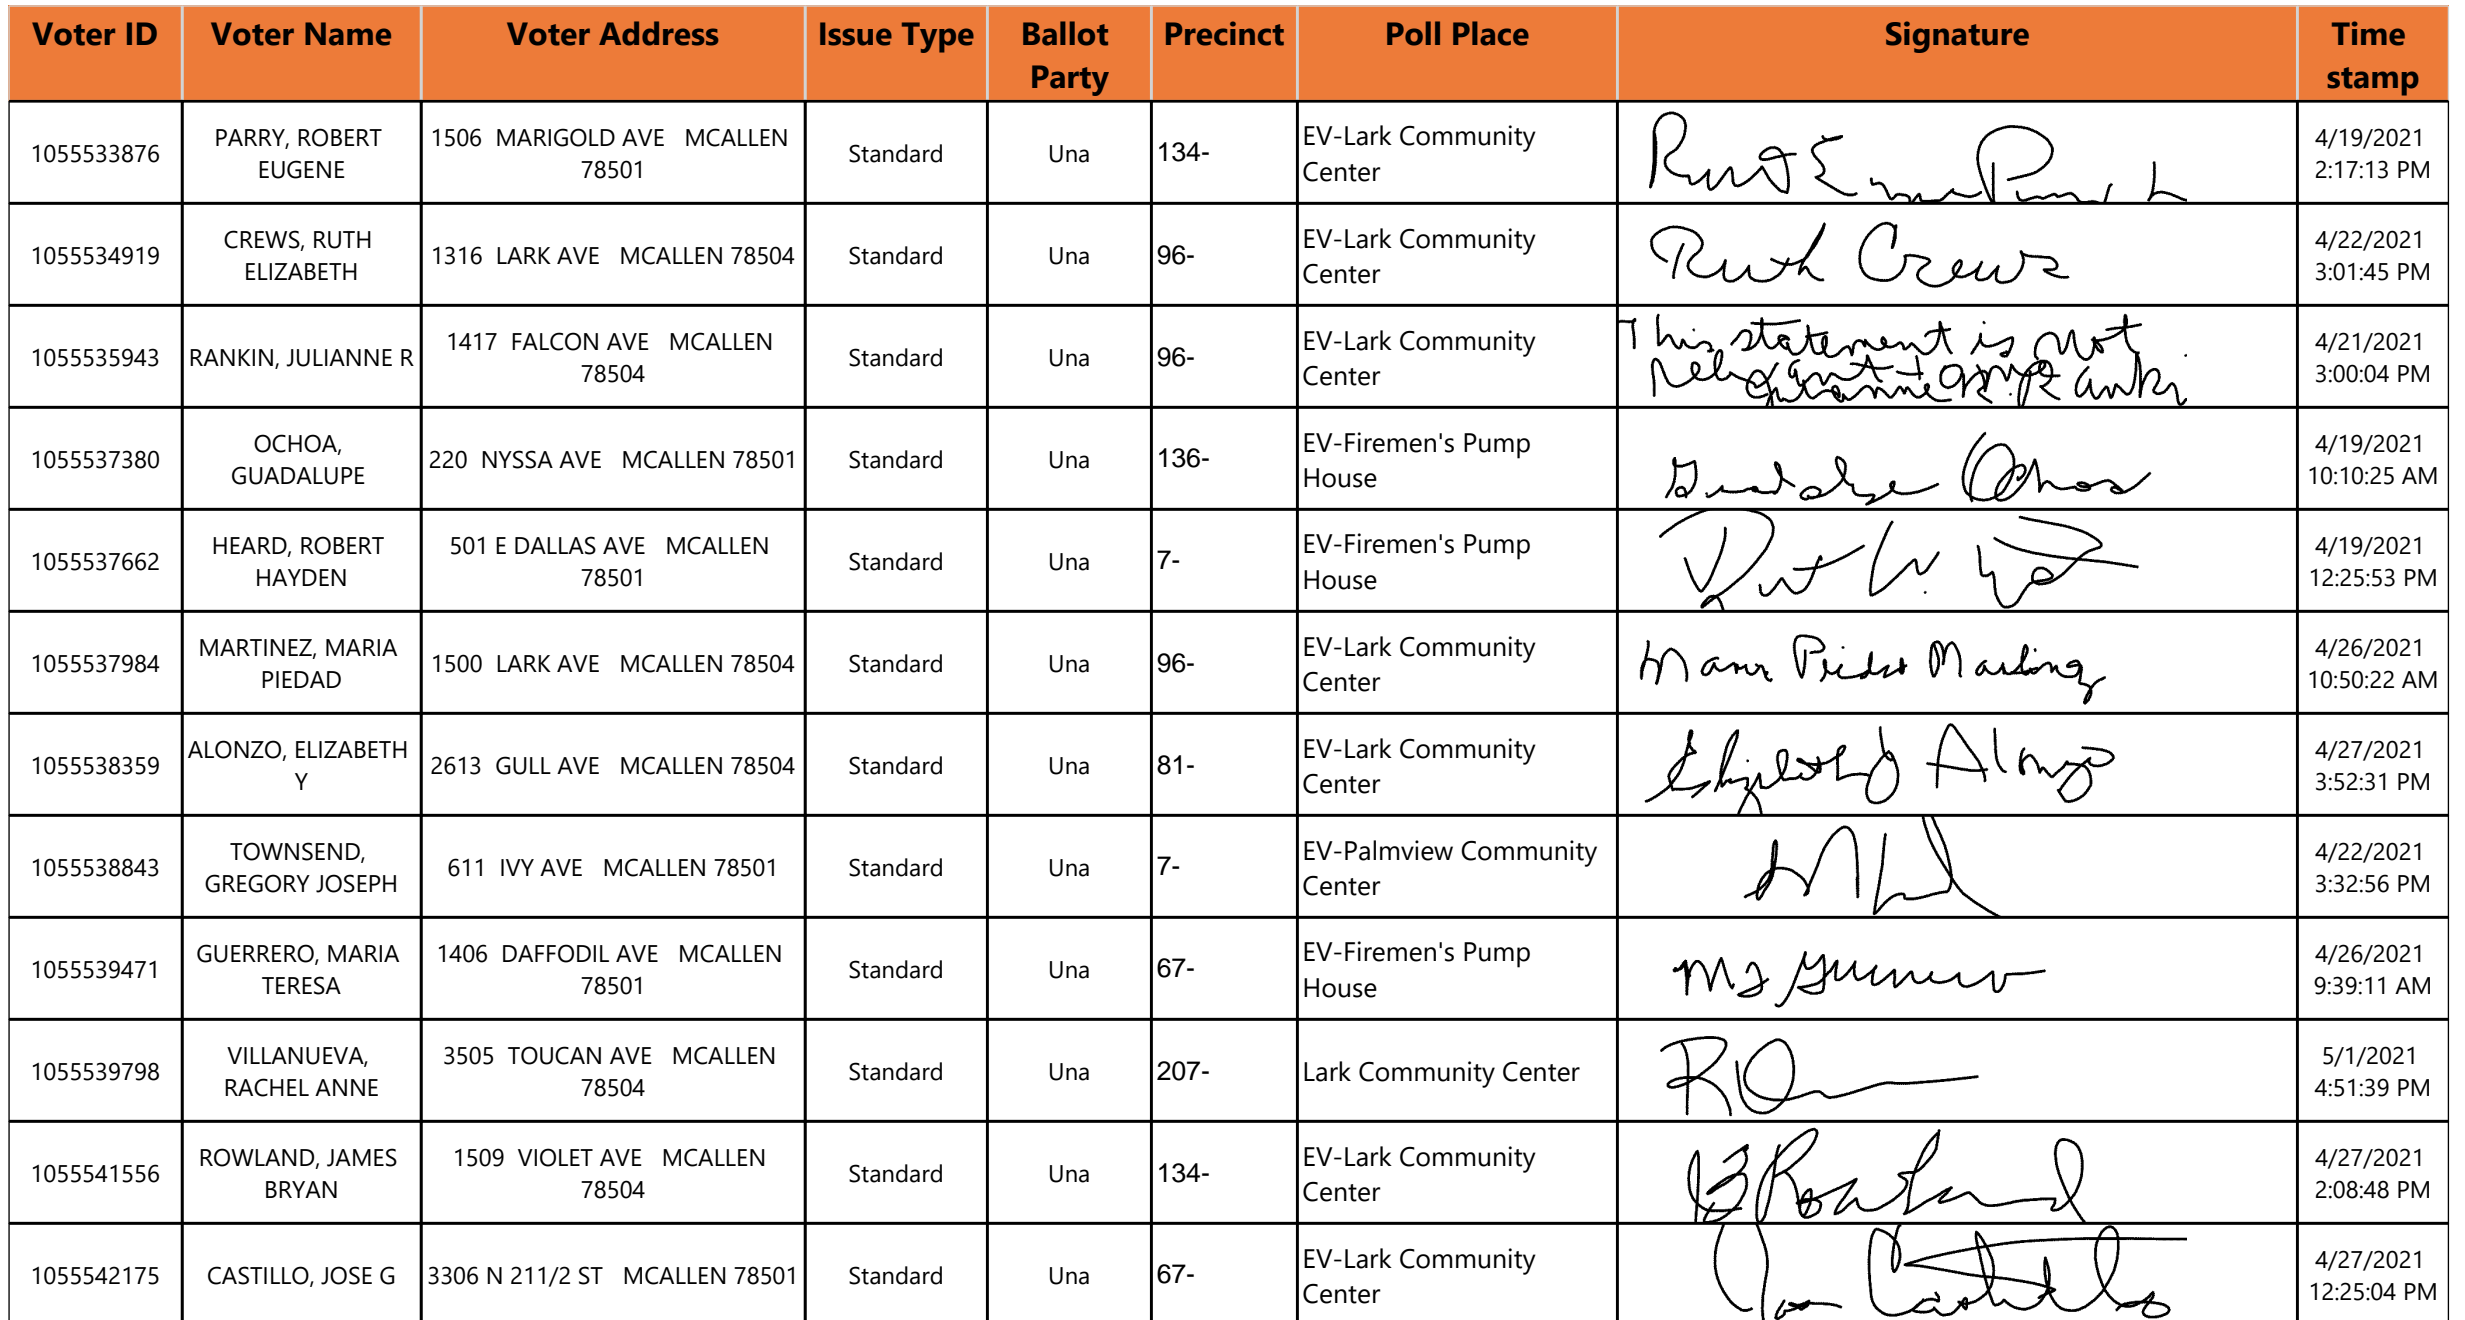 Voter ID Voter Name Voter Address Issue Type Ballot Party Precinct Poll Place Signature Time stamp
1055533876 PARRY, ROBERT EUGENE 1506 MARIGOLD AVE MCALLEN 78501 Standard Una 134- EV-Lark Community Center 4/19/2021 2:17:13 PM
1055534919 CREWS, RUTH ELIZABETH 1316 LARK AVE MCALLEN 78504 Standard Una 96- EV-Lark Community Center Ruth Crews 4/22/2021 3:01:45 PM
1055535943 RANKIN, JULIANNE R 1417 FALCON AVE MCALLEN 78504 Standard Una 96- EV-Lark Community Center This statement is not 4/21/2021 3:00:04 PM
1055537380 OCHOA, GUADALUPE 220 NYSSA AVE MCALLEN 78501 Standard Una 136- EV-Firemen's Pump House Guadalupe Ochoa 4/19/2021 10:10:25 AM
1055537662 HEARD, ROBERT HAYDEN 501 E DALLAS AVE MCALLEN 78501 Standard Una 7- EV-Firemen's Pump House 4/19/2021 12:25:53 PM
1055537984 MARTINEZ, MARIA PIEDAD 1500 LARK AVE MCALLEN 78504 Standard Una 96- EV-Lark Community Center Maria Piedad Martinez 4/26/2021 10:50:22 AM
1055538359 ALONZO, ELIZABETH Y 2613 GULL AVE MCALLEN 78504 Standard Una 81- EV-Lark Community Center Elizabeth Y Alonzo 4/27/2021 3:52:31 PM
1055538843 TOWNSEND, GREGORY JOSEPH 611 IVY AVE MCALLEN 78501 Standard Una 7- EV-Palmview Community Center 4/22/2021 3:32:56 PM
1055539471 GUERRERO, MARIA TERESA 1406 DAFFODIL AVE MCALLEN 78501 Standard Una 67- EV-Firemen's Pump House MT Guerrero 4/26/2021 9:39:11 AM
1055539798 VILLANUEVA, RACHEL ANNE 3505 TOUCAN AVE MCALLEN 78504 Standard Una 207- Lark Community Center 5/1/2021 4:51:39 PM
1055541556 ROWLAND, JAMES BRYAN 1509 VIOLET AVE MCALLEN 78504 Standard Una 134- EV-Lark Community Center B Rowland 4/27/2021 2:08:48 PM
1055542175 CASTILLO, JOSE G 3306 N 211/2 ST MCALLEN 78501 Standard Una 67- EV-Lark Community Center Jose Castillo 4/27/2021 12:25:04 PM